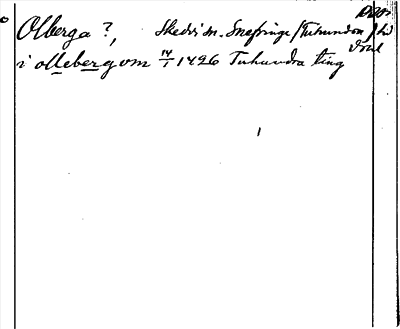 Olberga ?, Skedvi sn. Snefringe / Tuhundra
i olleberg om 14/1 1426 Tuhundra ting